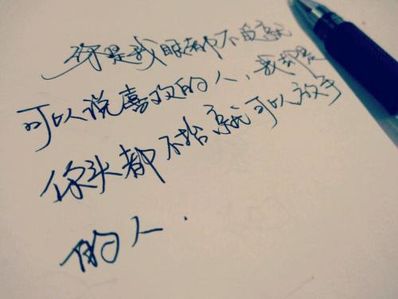 你是我眼都不眨就
可以说喜欢的人，我却是
你头都不抬就可以放手
的人.